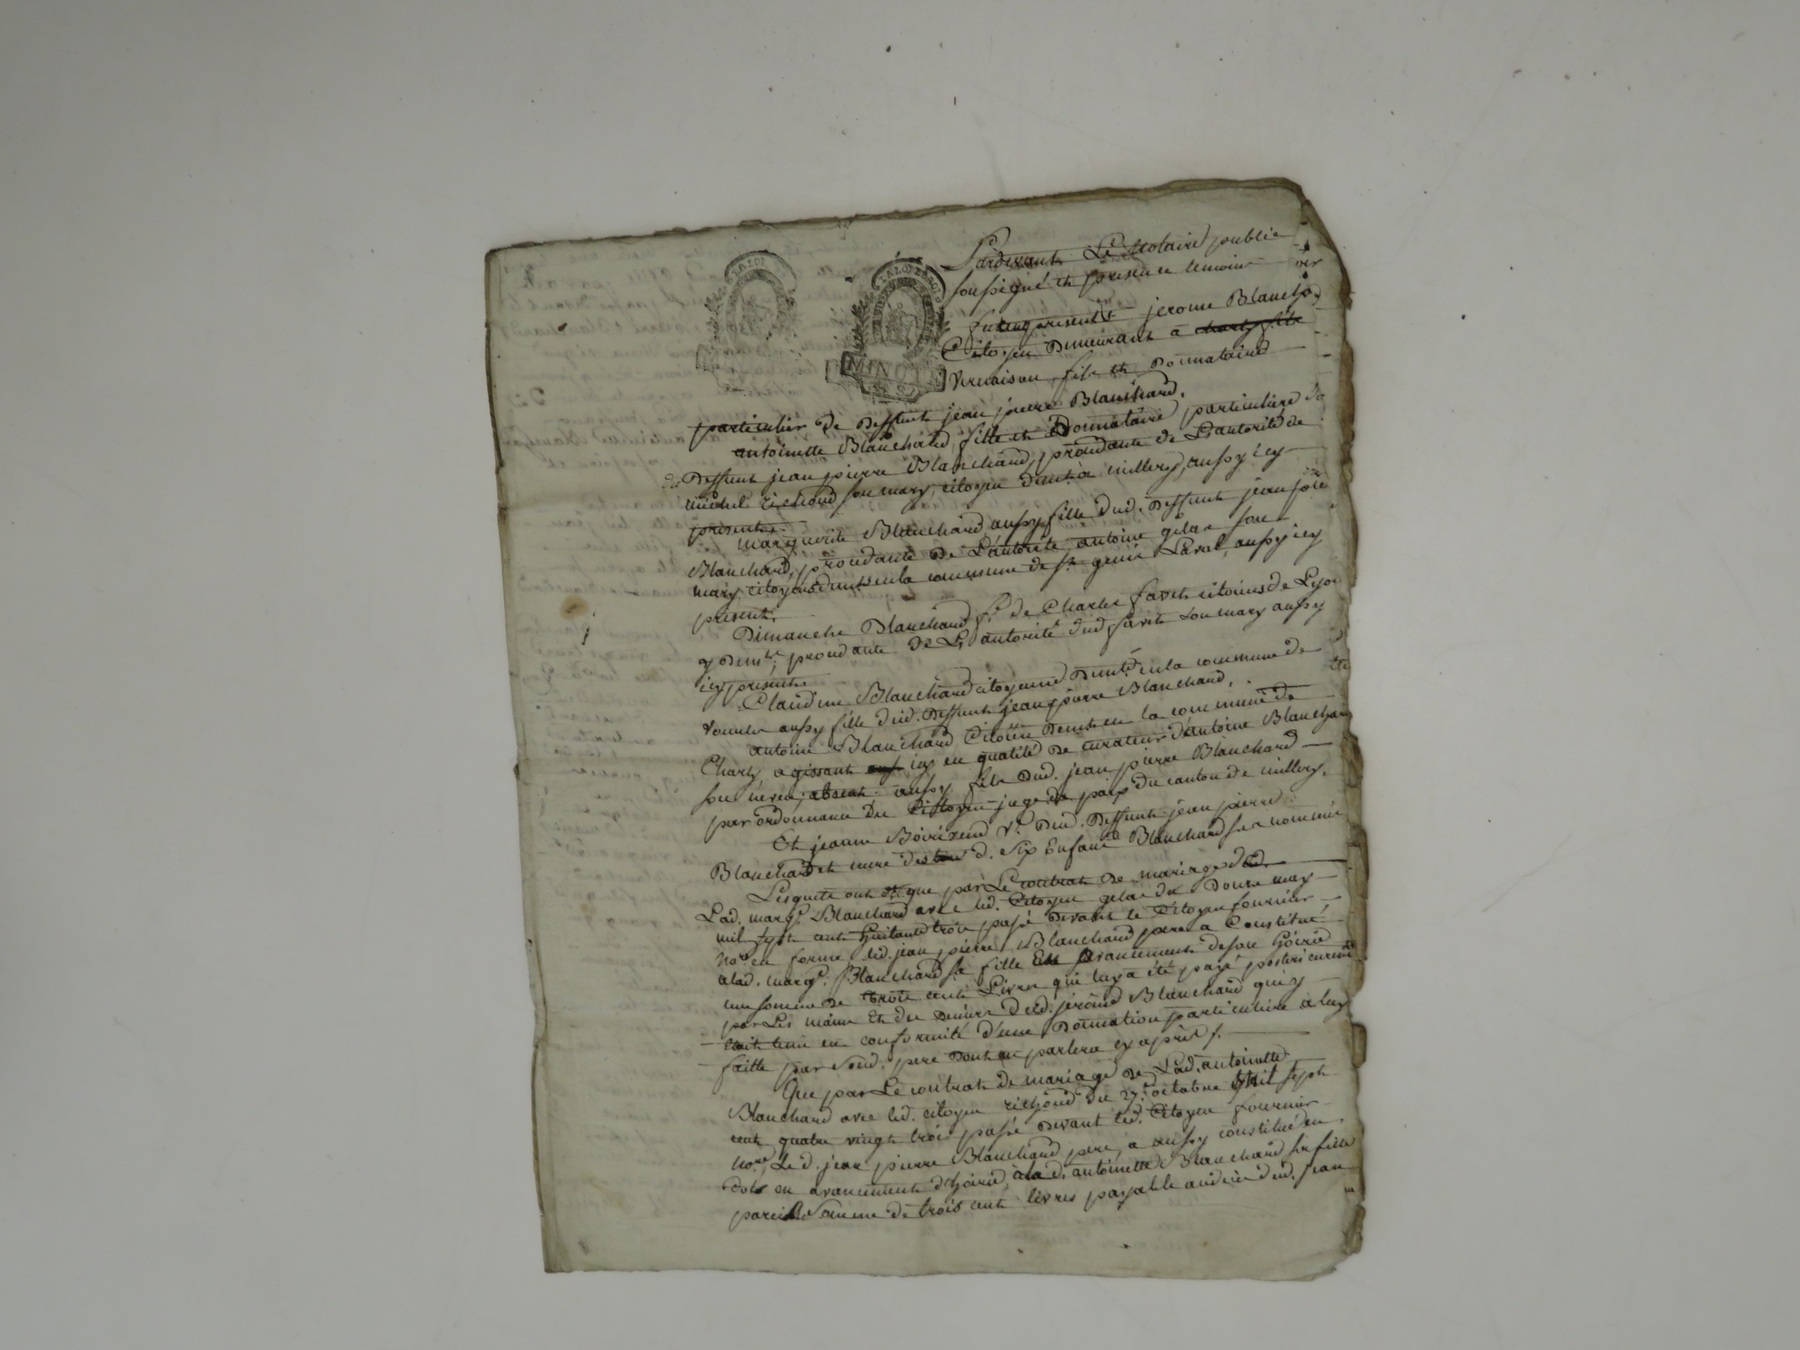 LA LOI
LA LOI
MINUTE
Pardevant Le Notaire public
soussigné et presence temoins
furent presents jerome Blanchard
Citoyen Demeurant a charly fils
Vernaison, fils et Donnataire
particulier de Deffunt jean pierre Blanchard.
antoinette Blanchard, fille et Donnataire particulière du
Deffunt jean pierre Blanchard, procedante de L'autorité de
michel richoud son mary, citoyen demt. a millery, aussy icy
presents.
marguerite Blanchard aussy fille dud. Deffunt jean pierre
Blanchard, procedante de L'autorité antoine gelas son
mary citoyens demt. en la commune de st. genis Laval, aussy icy
present.
Dimanche Blanchard fe. de Charles favet citoiens de Lyon
y demts., procedante de L'autorité dud. favet son mary aussy
icy present.
Claudine Blanchard citoyenne Demte. en la commune de
vourles aussy fille dud. Deffunt jean pierre Blanchard.
antoine Blanchard Citoien Demt. en la commune de
Charly, agissant icy en qualité de curateur d'antoine Blanchard
son neveu, absent aussy fils dud. jean pierre Blanchard
par ordonnance du Citoyen juge de paix du canton de millery.
Et jeanne Boiriv end ve. dud. Deffunt jean pierre
Blanchard et mere desd. six Enfans Blanchard sus nommés
Lesquels ont dit que par Le contrat de mariage de
Lad. margte. Blanchard avec led. Citoyen gelas du Douze may
mil sept cent Huitante trois passé Devant le Citoyen fournier
Nore. en forme, led. jean pierre Blanchard pere a Constitué
a lad. margte. Blanchard sa fille En avancement de son Hoirie
une somme de trois cents Livres qui luy a été payé posterieurement
par Les mains Et des Deniers dud. jérôme Blanchard qui y
etoit tenu en conformité d'une Donnation particuliere a luy
faitte par sond. pere dont on parlera cy après /.
Que par Le contrat de mariage de Lad. antoinette
Blanchard avec led. citoyen richoud du 27e. octobre Mil sept
cent quatre vingt trois passé Devant led. Citoyen fournier
nore, Le d. jean pierre Blanchard pere, a aussy constitué en
dot en avancement d'hoirie, a la d. antoinette Blanchard sa fille
pareille Somme de trois cent livres payable dud. jean